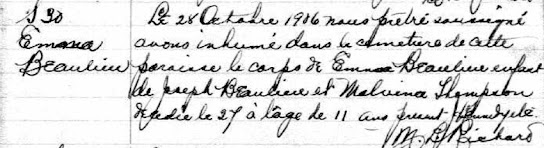 S 30
Emma
Beaulieu
Le 28 Octobre 1906 nous prêtre soussigné
avons inhumé dans le cimetiere de cette
paroisse le corps de Emma Beaulieu enfant
de Joseph Beaulieu et Malvina Thompson
décédée le 27 à l'âge de 11 ans present
M. L. Richard